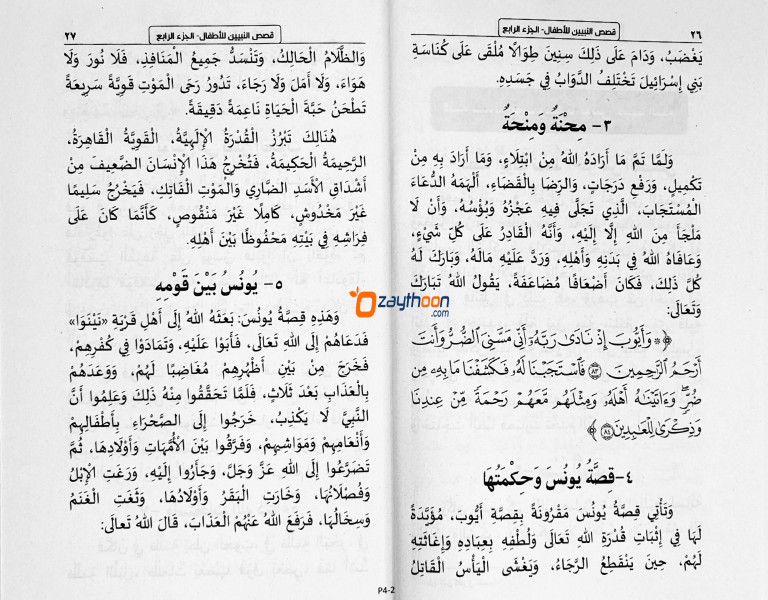 ٢٦
قصص النبيين للأطفال- الجزء الرابع
يَغْضَبُ، وَدَامَ عَلَى ذَلِكَ سِنِينَ طِوَالًا مُلْقًى عَلَى كُنَاسَةِ
بَنِي إِسْرَائِيلَ تَخْتَلِفُ الدَّوَابُّ فِي جَسَدِهِ.
٣- مِحْنَةٌ وَمِنْحَةٌ
وَلَمَّا تَمَّ مَا أَرَادَهُ اللهُ مِنْ ابْتِلَاءٍ، وَمَا أَرَادَ بِهِ مِنْ
تَكْمِيلٍ، وَرَفْعِ دَرَجَاتٍ، وَالرِّضَا بِالْقَضَاءِ، أَلْهَمَهُ الدُّعَاءَ
الْمُسْتَجَابَ، الَّذِي تَجَلَّى فِيهِ عَجْزُهُ وَبُؤْسُهُ، وَأَنْ لَا
مَلْجَأَ مِنَ اللهِ إِلَّا إِلَيْهِ، وَأَنَّهُ الْقَادِرُ عَلَى كُلِّ شَيْءٍ،
وَعَافَاهُ اللهُ فِي بَدَنِهِ وَأَهْلِهِ، وَرَدَّ عَلَيْهِ مَالَهُ، وَبَارَكَ لَهُ
كُلَّ ذَلِكَ، فَكَانَ أَضْعَافًا مُضَاعَفَةً، يَقُولُ اللهُ تَبَارَكَ
وَتَعَالَى:
﴿۞ وَأَيُّوبَ إِذْ نَادَىٰ رَبَّهُۥٓ أَنِّي مَسَّنِيَ ٱلضُّرُّ وَأَنتَ
أَرْحَمُ ٱلرَّٰحِمِينَ ٨٣ فَٱسْتَجَبْنَا لَهُۥ فَكَشَفْنَا مَا بِهِۦ مِن
ضُرٍّۖ وَءَاتَيْنَٰهُ أَهْلَهُۥ وَمِثْلَهُم مَّعَهُمْ رَحْمَةً مِّنْ عِندِنَا
وَذِكْرَىٰ لِلْعَٰبِدِينَ ٨٤﴾
٤- قِصَّةُ يُونُسَ وَحِكْمَتُهَا
وَتَأْتِي قِصَّةُ يُونُسَ مَقْرُونَةً بِقِصَّةِ أَيُّوبَ، مُؤَيِّدَةً
لَهَا فِي إِثْبَاتِ قُدْرَةِ اللهِ تَعَالَى وَلُطْفِهِ بِعِبَادِهِ وَإِغَاثَتِهِ
لَهُمْ، حِينَ يَنْقَطِعُ الرَّجَاءُ، وَيَغْشَى الْيَأْسُ الْقَاتِلُ
٢٧
قصص النبيين للأطفال- الجزء الرابع
وَالظَّلَامُ الْحَالِكُ، وَتَنْسَدُّ جَمِيعُ الْمَنَافِذِ، فَلَا نُورَ وَلَا
هَوَاءَ، وَلَا أَمَلَ وَلَا رَجَاءَ، تَدُورُ رَحَى الْمَوْتِ قَوِيَّةً سَرِيعَةً
تَطْحَنُ حَبَّةَ الْحَيَاةِ نَاعِمَةً دَقِيقَةً.
هُنَالِكَ تَبْرُزُ الْقُدْرَةُ الْإِلَهِيَّةُ، الْقَوِيَّةُ الْقَاهِرَةُ،
الرَّحِيمَةُ الْحَكِيمَةُ، فَتُخْرِجُ هَذَا الْإِنْسَانَ الضَّعِيفَ مِنْ
أَشْدَاقِ الْأَسَدِ الضَّارِي وَالْمَوْتِ الْفَاتِكِ، فَيَخْرُجُ سَلِيمًا
غَيْرَ مَخْدُوشٍ، كَامِلًا غَيْرَ مَنْقُوصٍ، كَأَنَّمَا كَانَ عَلَى
فِرَاشِهِ فِي بَيْتِهِ مَحْفُوظًا بَيْنَ أَهْلِهِ.
٥- يُونُسُ بَيْنَ قَوْمِهِ
وَهَذِهِ قِصَّةُ يُونُسَ: بَعَثَهُ اللهُ إِلَى أَهْلِ قَرْيَةِ «نَيْنَوَا»
فَدَعَاهُمْ إِلَى اللهِ تَعَالَى، فَأَبَوْا عَلَيْهِ، وَتَمَادَوْا فِي كُفْرِهِمْ،
فَخَرَجَ مِنْ بَيْنِ أَظْهُرِهِمْ مُغَاضِبًا لَهُمْ، وَوَعَدَهُمْ
بِالْعَذَابِ بَعْدَ ثَلَاثٍ، فَلَمَّا تَحَقَّقُوا مِنْهُ ذَلِكَ وَعَلِمُوا أَنَّ
النَّبِيَّ لَا يَكْذِبُ، خَرَجُوا إِلَى الصَّحْرَاءِ بِأَطْفَالِهِمْ
وَأَنْعَامِهِمْ وَمَوَاشِيهِمْ، وَفَرَّقُوا بَيْنَ الْأُمَّهَاتِ وَأَوْلَادِهَا، ثُمَّ
تَضَرَّعُوا إِلَى اللهِ عَزَّ وَجَلَّ، وَجَأَرُوا إِلَيْهِ، وَرَغَتِ الْإِبْلُ
وَفُصْلَانُهَا، وَخَارَتِ الْبَقَرُ وَأَوْلَادُهَا، وَثَغَتِ الْغَنَمُ
وَسِخَالُهَا، فَرَفَعَ اللهُ عَنْهُمُ الْعَذَابَ، قَالَ اللهُ تَعَالَى:
zaythoon
.com
P4-2